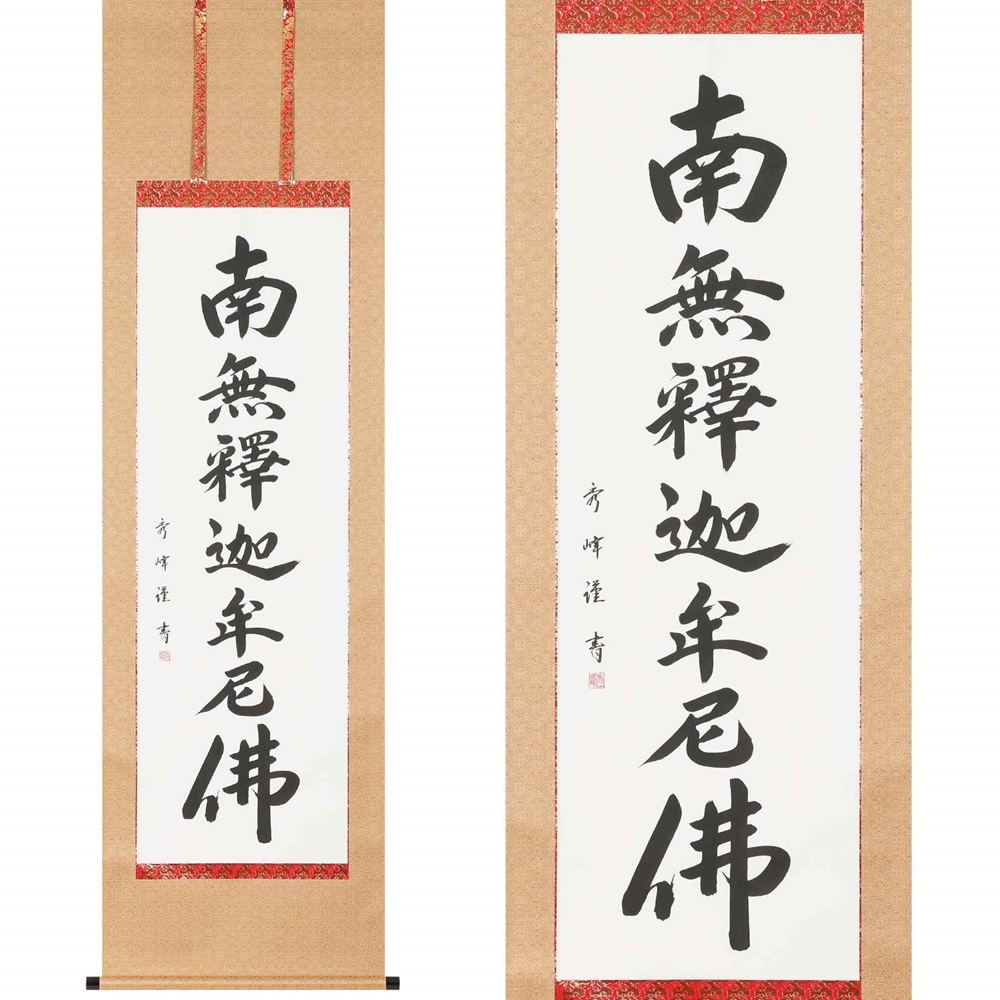 南無釋迦牟尼佛
秀峰謹書
南無釋迦牟尼佛
秀峰謹書